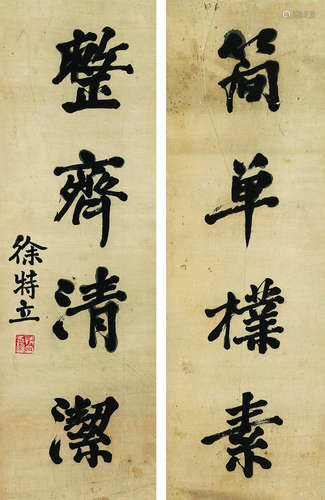 简单樸素
整齊清潔
徐特立